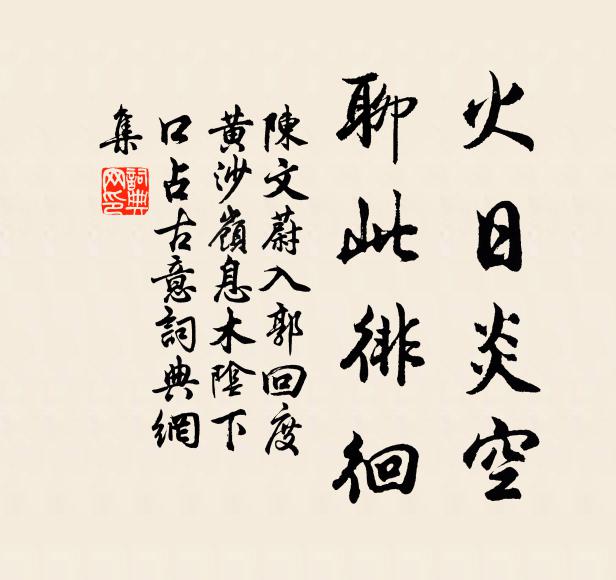 火日炎空
聊此徘徊
陳文蔚入郭回度
黃沙嶺息木陰下
口占古意詞典網
集
詞典網印